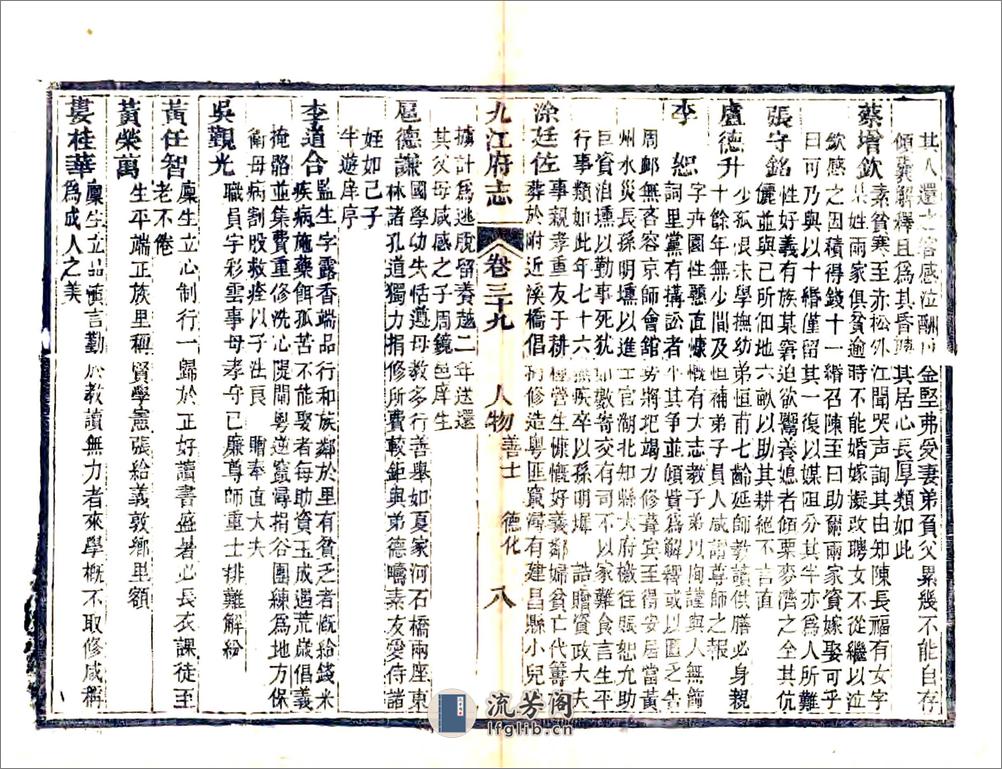 其人還之客感泣酬以金堅弗受妻弟貧父累幾不能自存
傾囊解釋且為其昏聘其居心長厚類如此
蔡增欽 素貧寒至赤松外江聞哭声詢其由知陳長福有女字
某姓兩家俱貧逾時不能婚嫁擬改聘女不從繼以泣
欽感之因積得錢十一緡召陳至曰助爾兩家資嫁娶可乎
曰可乃與以十緡僅留其一復以媒阻分其半亦為人所難
張守銘 性好義有族某窘迫欲鬻養媳者傾粟麥濟之全其伉
儷並與己所佃地六畝以助其耕絕不言直
盧德升 少孤恨未學撫幼弟恒甫七齡延師教讀供膳必身親
十餘年無少間及恒補弟子員人咸謂尊師之報
李 恕 字卉園性懸直慷慨有大志教子弟以恂謹與人無簡
詞里黨有搆訟者不其爭並傾貲為解釋或以匱乏告
周卹無吝容京師會館勢將圮竭力修葺賓至得安居當黃
州水災長孫明壎以進士官湖北知縣大府檄往賑恕允助
巨資洎壎以勤事死猶如數寄交有司不以家難食言生平
行事類如此年七十六無疾卒以長孫明墀 誥贈資政大夫
涂廷佐 事親孝重友于耕傭營生慷慨好義鄰婦貧亡代籌
葬於附近溪橋倡衿修造粵匪竄潯有建昌縣小兒
九江府志 卷三十九 人物 善士 德化 八
據計為逃脫留養越二年送還
其父母咸感之子周鏡邑庠生
扈德謙 國學幼失恬遵母教多行善舉如夏家河石橋兩座東
林諸孔道獨力捐修所費較鉅與弟德疇素友愛待諸
姪如己子
牛遊庠序
李道合 監生字露香端品行和族鄰於里有貧乏者慨給錢米
疾病施藥餌孤苦不能娶者每助資玉成遇荒歲倡義
掩骼並集費重修洗心隄閘粵逆竄潯捐谷團練為地方保
衛母病割股救痊以子仕良 贈奉直大夫
吳觀光 職員字彩雲事母孝守己廉尊師重士排難解紛
黃任智 廩生立心制行一歸於正好讀書盛暑必長衣課徒至
老不倦
黃榮萬 生平端正族里稱賢學憲張給義敦鄉里額
婁桂華 廩生立品慎言勤於教讀無力者來學概不取修咸稱
為成人之美
流芳阁
lfglib.cn